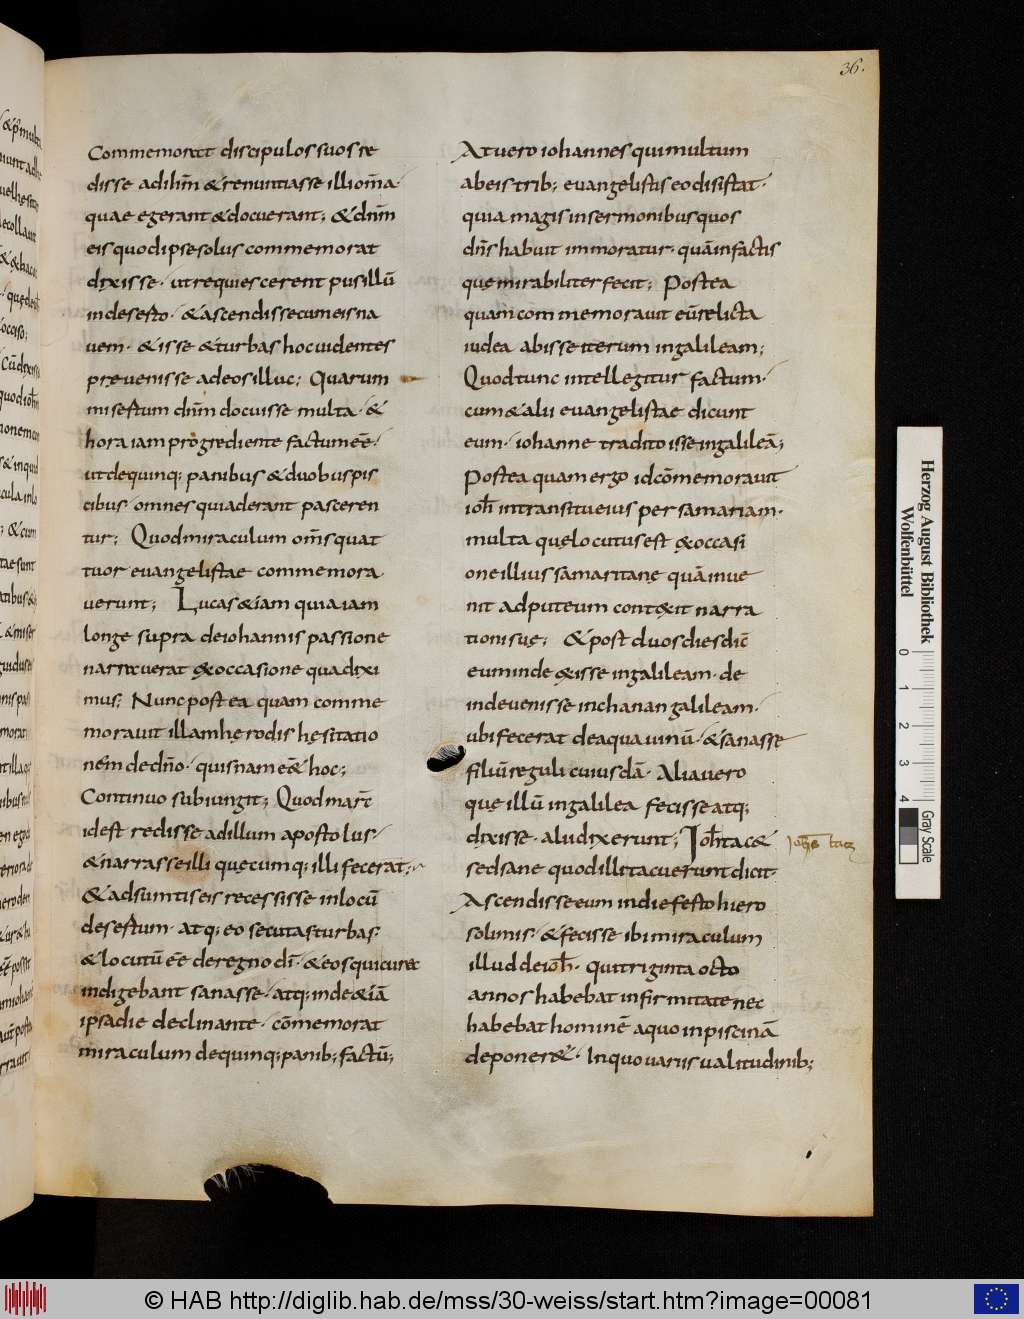 36.
Commemorat discipulos suos re
disse ad ihm̄ & renuntiasse illi om̄a·
quae egerant & docuerant; & dnm̄
eis quod ipse solus commemorat
dixisse· ut requiescerent pusillū
in deserto· & ascendisse cum eis na
uem· & isse & turbas hoc uidentes
pręuenisse ad eos illuc; Quarum
misertum dnm̄ docuisse multa· &
hora iam progrediente factum eē·
ut de quinq; panibus & duobus pis
cibus omnes qui aderant pasceren
tur; Quod miraculum om̄s quat
tuor euangelistae commemora
uerunt; Lucas & iam quia iam
longe supra de iohannis passione
narrauerat & occasione qua dixi
mus; Nunc post ea quam comme
morauit illam hęrodis hęsitatio
nem̄ de dn̄o· quisnam e& hoc;
Continuo subiungit; Quod marc̄
id est redisse ad illum apostolus
& narrasse illi quęcumq; illi fecerat;
& adsumtis eis recessisse in locū
desertum· atq; eo secutas turbas
& locutū eē de regno dī· & eos qui curać
indigebant sanasse· atq; inde & iā
ipsa die declinante· cōmemorat
miraculum de quinq; panib; factū;
At uero iohannes qui multum
ab eis trib; euangelistis eo disistat·
quia magis in sermonibus quos
dn̄s habuit immoratur· quā in factis
quę mirabiliter fecit; Postea
quam̄ commemorauit eūrelicta
iudea abisse iterum in galileam;
Quod tunc intellegitur factum·
cum & alii euangelistae dicunt
eum· iohanne tradito isse in galileā;
Postea quam ergo id cōmemorauit
ioh̄ in transitu eius per samariam·
multa quę locutus est & occasi
one illius samaritanę quā inue
nit ad puteum contexit narra
tioni suę; & post duos dies dic̄
eum inde exisse in galileam· de
inde uenisse in chanan galileam·
ubi fecerat de aqua uinū· & sanasse
filiū reguli cuiusdā· Alia uero
quę illū in galilea fecisse atq;
dixisse· alii dixerunt; Ioh̄ tac&
sed sane quod illi tacuerunt dicit
Ascendisse eum in die festo hiero
solimis· & fecisse ibi miraculum
illud de ioh̄· qui triginta octo
annos habebat infirmitate nec
habebat hominē a quo in piscinā
deponer&· In quo uariis ualitudinib;
Herzog August Bibliothek
Wolfenbüttel
0 1 2 3 4
Gray Scale
© HAB http://diglib.hab.de/mss/30-weiss/start.htm?image=00081